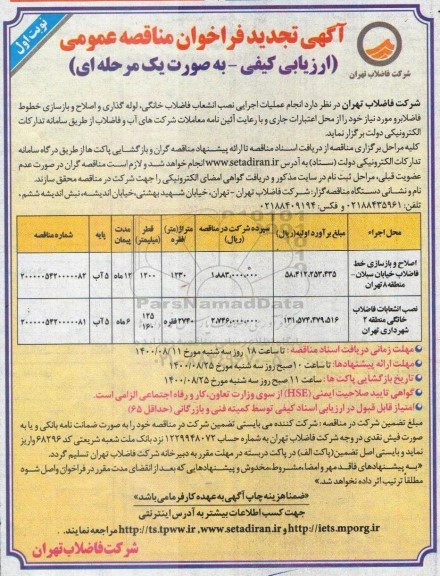 نوبت اول
شرکت فاضلاب تهران
آگهی تجدید فراخوان مناقصه عمومی
(ارزیابی کیفی - به صورت یک مرحله ای)
شرکت فاضلاب تهران در نظر دارد انجام عملیات اجرایی نصب انشعاب فاضلاب خانگی، لوله گذاری و اصلاح و بازسازی خطوط
فاضلابرو مورد نیاز خود را از محل اعتبارات جاری و با رعایت آئین نامه معاملات شرکت های آب و فاضلاب از طریق سامانه تدارکات
الکترونیکی دولت برگزار نماید.
کلیه مراحل برگزاری مناقصه از دریافت اسناد مناقصه تا ارائه پیشنهاد مناقصه گران و بازگشایی پاکت ها از طریق درگاه سامانه
تدارکات الکترونیکی دولت (ستاد) به آدرس www.setadiran.ir انجام خواهد شد و لازم است مناقصه گران در صورت عدم
عضویت قبلی، مراحل ثبت نام در سایت مذکور و دریافت گواهی امضای الکترونیکی را جهت شرکت در مناقصه محقق سازند.
نام و نشانی دستگاه مناقصه گزار: شرکت فاضلاب تهران - تهران، خیابان شهید بهشتی، خیابان اندیشه، نبش اندیشه ششم.
تلفن: ۰۲۱۸۸۴۳۵۹۶۱ و فکس: ۰۲۱۸۸۴۰۹۱۹۴
محل اجراء مبلغ برآورد اولیه(ریال) سپرده شرکت در مناقصه (ریال) متراژ(متر) /فقره قطر (میلیمتر) مدت پیمان پایه شماره مناقصه
اصلاح و بازسازی خط فاضلاب خیابان سبلان - منطقه ۸ تهران ۵۸،۴۱۲،۲۵۳،۴۳۵ ۱،۸۸۳،۰۰۰،۰۰۰ ۱۲۳۰ ۱۲۰۰ ۱۲ ماه ۵ آب ۲۰۰۰۰۰۵۴۲۰۰۰۰۰۸۲
نصب انشعابات فاضلاب خانگی منطقه ۲ شهرداری تهران ۱۳۱،۵۷۴،۴۷۹،۵۱۶ ۲،۷۴۶،۰۰۰،۰۰۰ ۲۷۴۰ فقره ۱۲۵ ۱۶۰ ۶ ماه ۵ آب ۲۰۰۰۰۰۵۴۲۰۰۰۰۰۸۱
مهلت زمانی دریافت اسناد مناقصه : تا ساعت ۱۸ روز سه شنبه مورخ ۱۴۰۰/۰۸/۱۱
مهلت ارائه پیشنهادها: تا ساعت ۱۰ صبح روز سه شنبه مورخ ۱۴۰۰/۰۸/۲۵
تاریخ بازگشایی پاکت ها : ساعت ۱۱ صبح روز سه شنبه مورخ ۱۴۰۰/۰۸/۲۵
گواهی تایید صلاحیت ایمنی (HSE) از سوی وزارت تعاون، کار و رفاه اجتماعی الزامی است.
امتیاز قابل قبول در ارزیابی اسناد کیفی توسط کمیته فنی و بازرگانی (حداقل ۶۵)
مبلغ تضمین شرکت در مناقصه : شرکت کننده می بایستی تضمین شرکت در مناقصه خود را به صورت ضمانت نامه بانکی و یا به
صورت فیش نقدی در وجه شرکت فاضلاب تهران به شماره حساب ۱۲۲۹۹۴۸۰۷۲ نزد بانک ملت شعبه شریعتی کد ۶۸۲۹۶ واریز
نماید و بایستی اصل تضمین (پاکت الف) در پاکت دربسته در مهلت مقرر به دبیرخانه شرکت فاضلاب تهران تسلیم گردد.
«به پیشنهادهای فاقد مهر و امضا، مشروط، مخدوش و پیشنهادهایی که بعد از انقضای مدت مقرر در فراخوان واصل شود
مطلقا ترتیب اثر داده نخواهد شد.»
«ضمنا هزینه چاپ آگهی به عهده کارفرما می باشد»
جهت کسب اطلاعات بیشتر به آدرس اینترنتی
http://iets.mporg.ir و www.setadiran.ir و http://ts.tpww.ir مراجعه نمایند.
شرکت فاضلاب تهران
ParsNamadData